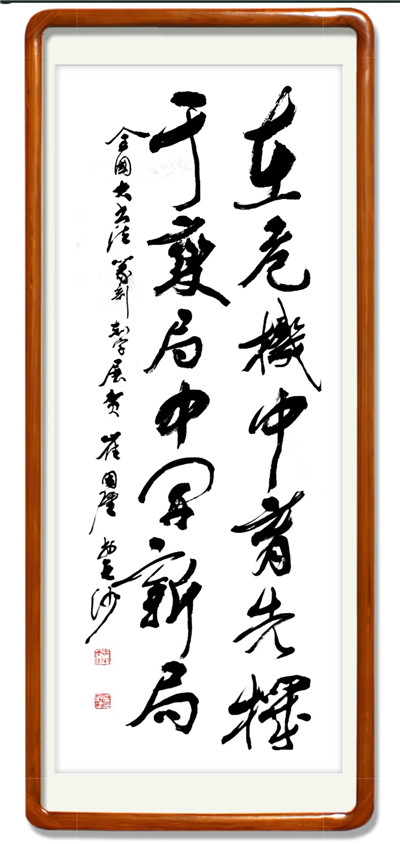 在危機中育先機
于變局中開新局
全國大書法篆刻刻字展 崔國